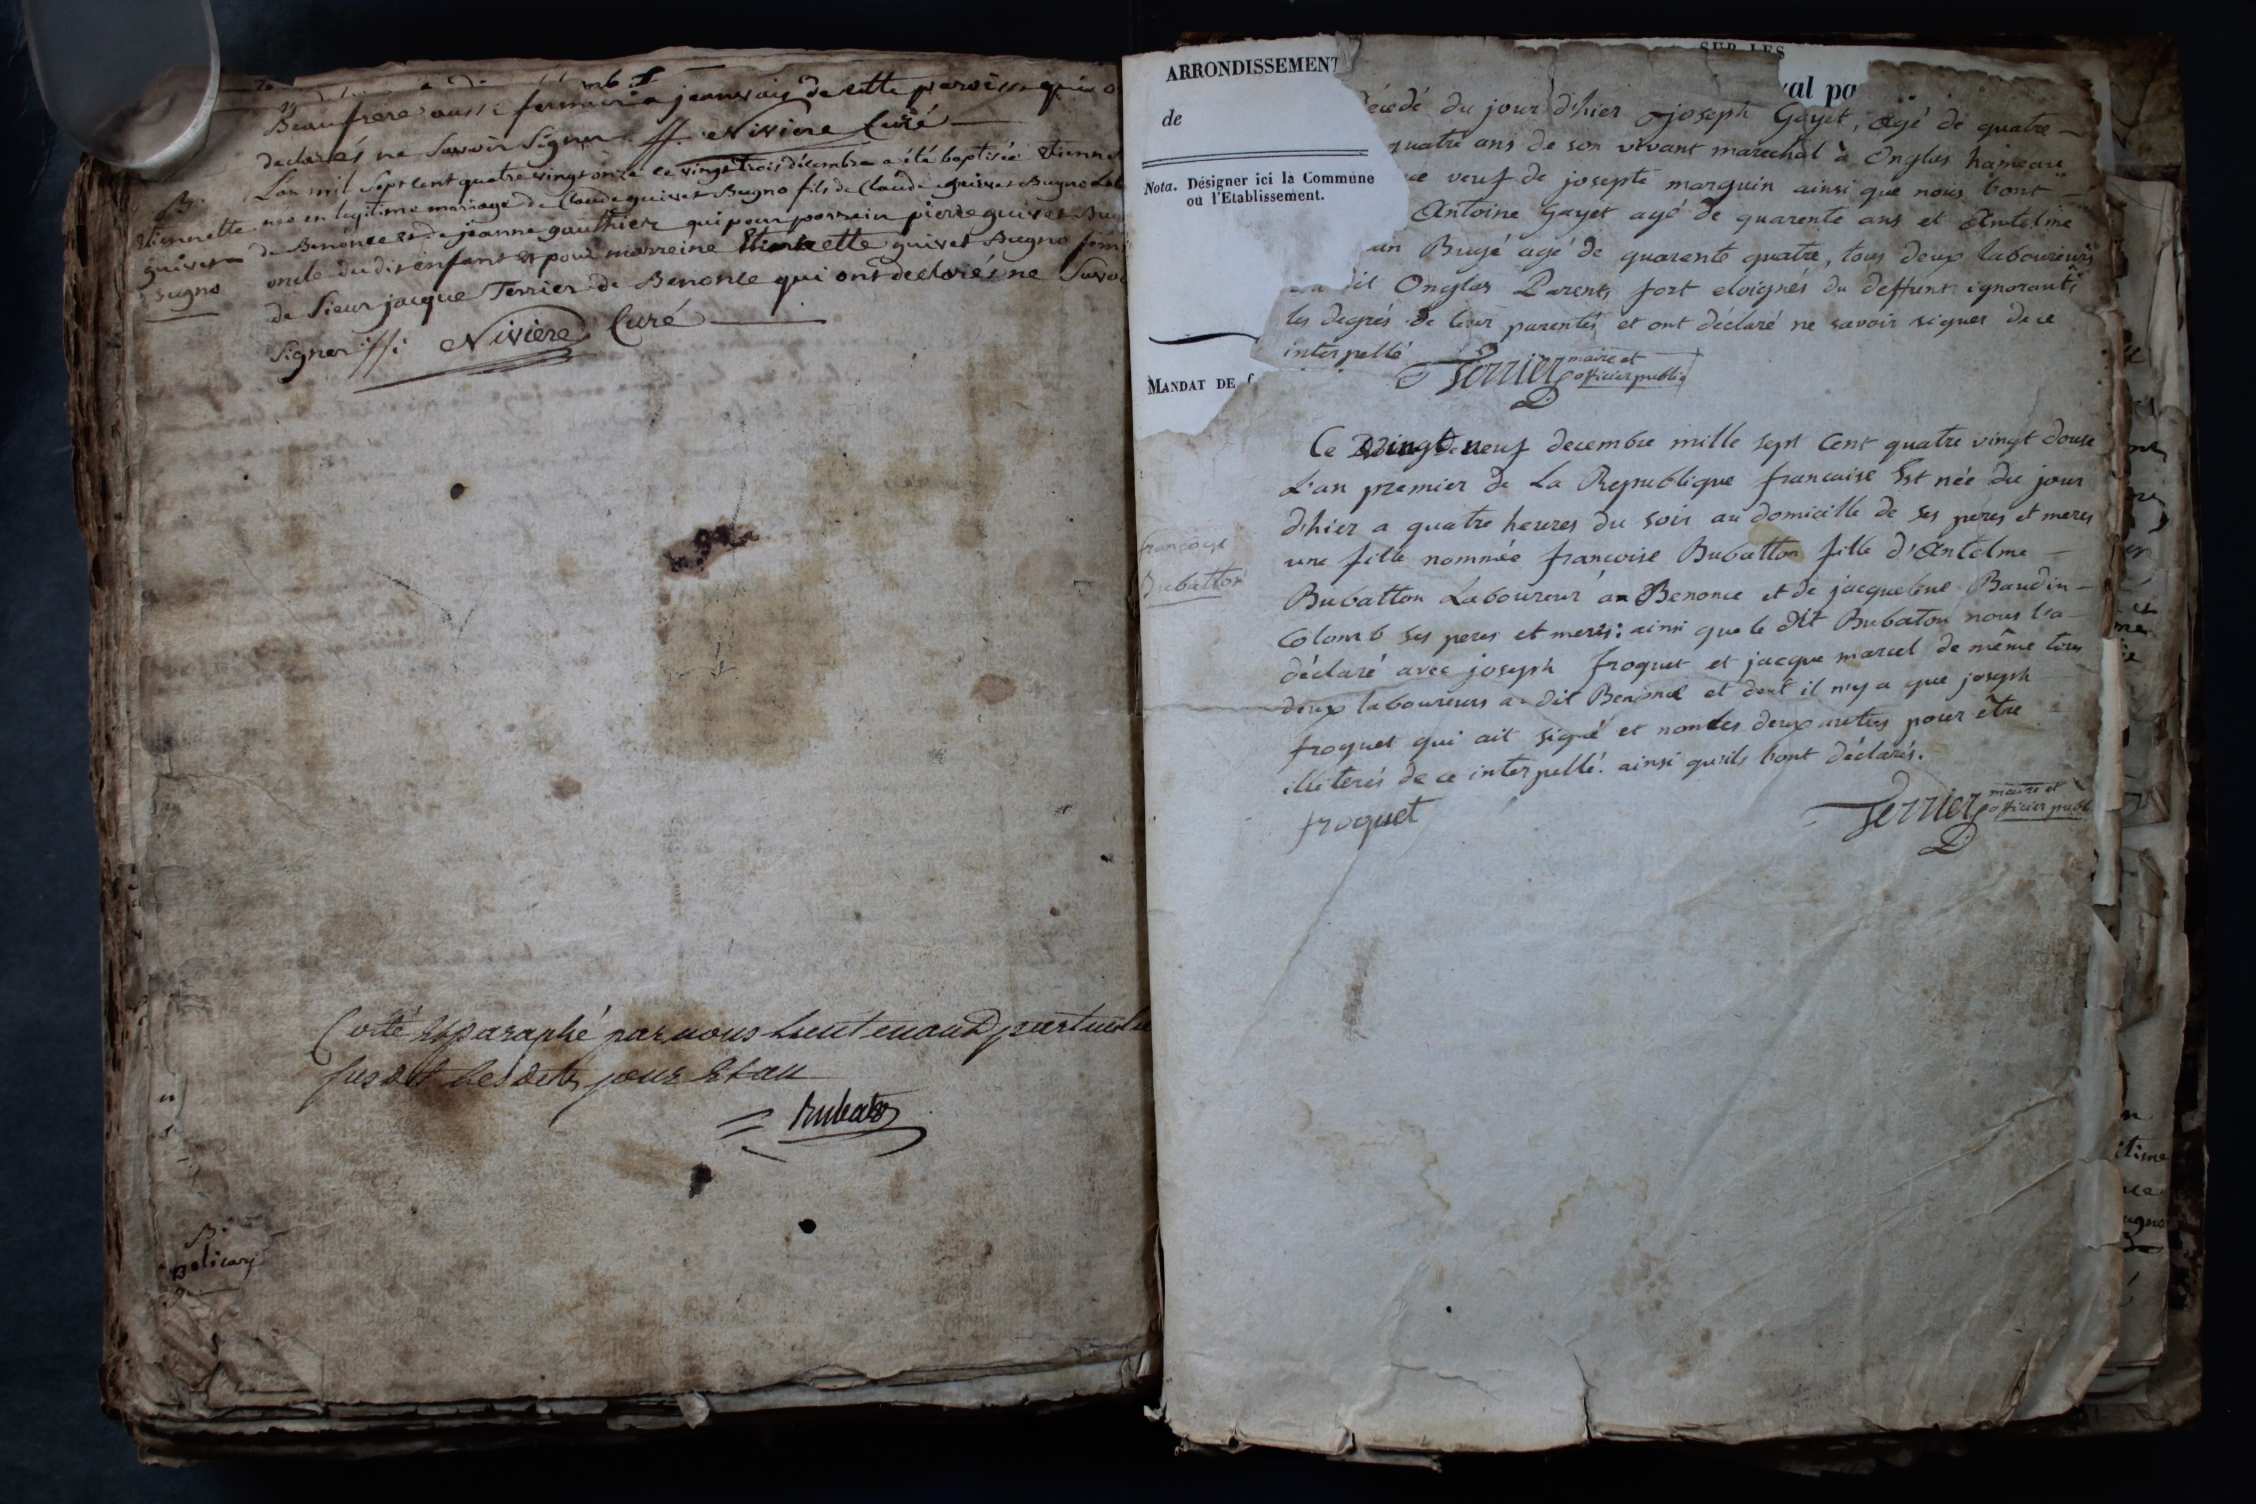 Beaufrere aussi fermier a jeanvais de cette paroisse qui o
declarés ne Savoir Signer ://: Niviere Curé
L'an mil Sept cent quatre vingt onze ce vingt trois décembre a été baptisée Etienne
née en legitime mariage de Claude guivet Bugno fils de Claude guivet Bugno Lab
de Benonce et de jeanne gauthier qui pour parrein pierre guivet Bu
oncle du dit enfant et pour marreine Etiennette guivet Bugno fem
de Sieur jacque Terrier de Benonce qui ont declarés ne Savoi
Signer ://: Niviere Curé
B.
Etiennette
guivet
Bugno
Cotté et paraphé par nous Lieutenant particulie
susdit lesdits jour et an
Rubat
B.
Policarp
ARRONDISSEMENT
de
Nota. Désigner ici la Commune
ou l'Etablissement.
MANDAT DE
SUR LES
val pa
décédé du jour d'hier joseph Gayet, agé de quatre
quatre ans de son vivant marechal à Onglas hameau
ce veuf de josepte marquin ainsi que nous l'ont
Antoine Gayet agé de quarente ans et Antelme
un Bugé agé de quarente quatre, tous deux laboureurs
dit Onglas Parents fort eloignés du deffunt ignorants
les degrés de leur parentés et ont déclaré ne savoir signer de ce
interpellé
Terrier maire et
officier publiq
Ce vingt neuf decembre mille sept Cent quatre vingt douse
L'an premier de La Republique francaise Est née du jour
d'hier a quatre heures du soir au domicille de ses peres et meres
une fille nommée francoise Bubatton fille d'Antelme
Bubatton Laboureur a Benonce et de jacqueleine Baudin
Colomb ses peres et meres: ainsi que le dit Bubaton nous l'a
déclaré avec joseph froquet et jacque marcel de même tous
deux laboureurs au dit Benonce et dont il n'y a que joseph
froquet qui ait signé et non les deux autres pour être
illiterés de ce interpellé. ainsi qu'ils l'ont déclarés.
froquet
Terrier maire et
officier publ
francoise
Bubatton